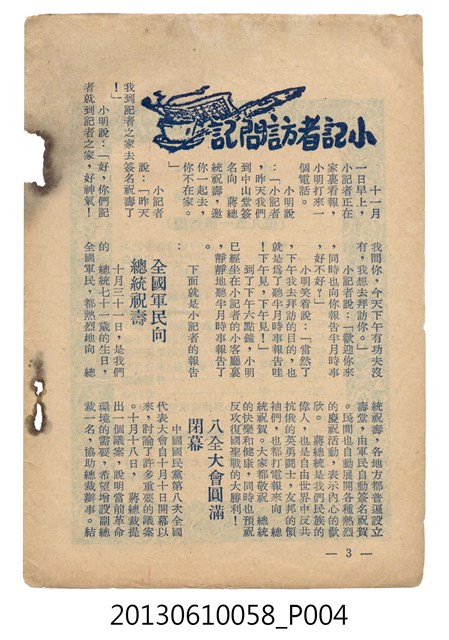 小記者訪問記
十一月
一日早上，
小記者正在
家裏看報，
小明打來一
個電話。
小明說
：「小記者
，昨天我們
到中山堂簽
名向　蔣總
統祝壽，邀
你一起去，
你不在家。
」
小記者
說：「昨天
我到記者之家去簽名祝壽了
！」
小明說：「好，你們記
者就到記者之家，好神氣！
我問你，今天下午有功夫沒
有，我想去拜訪你。」
小記者說：「歡迎你來
，同時也向你報告半月時事
，好不好？」
小明笑着說：「當然了
，下午我去拜訪的目的，也
就是爲了聽半月時事報告哇
！下午見，下午見！」
到了下午六點鐘，小明
已經坐在小記者的小客廳裏
，靜靜地聽半月時事報告了
。
下面就是小記者的報告
：
全國軍民向
總統祝壽
十月三十一日，是我們
的　總統七十一歲的生日，
全國軍民，都熱烈地向　總
統祝壽，各地方都普遍設立
壽堂，由軍民自動簽名祝賀
。民間也自動展開各種熱烈
的慶祝活動，表示內心的歡
欣。　蔣總統是我們民族的
偉人，也是自由世界中反共
抗俄的英勇鬥士，友邦的領
袖們，也都打電報來向　總
統祝賀。大家都敬祝　總統
的快樂和健康，同時也預祝
反攻復國聖戰的大勝利！
八全大會圓滿
閉幕
中國國民黨第八次全國
代表大會自十月十日開幕以
來，討論了許多重要的議案
。十月十八日，　蔣總裁提
出一個議案，說明當前革命
環境的需要，希望增設副總
裁一名，協助總裁辦事。結
— 3 —
20130610058_P004